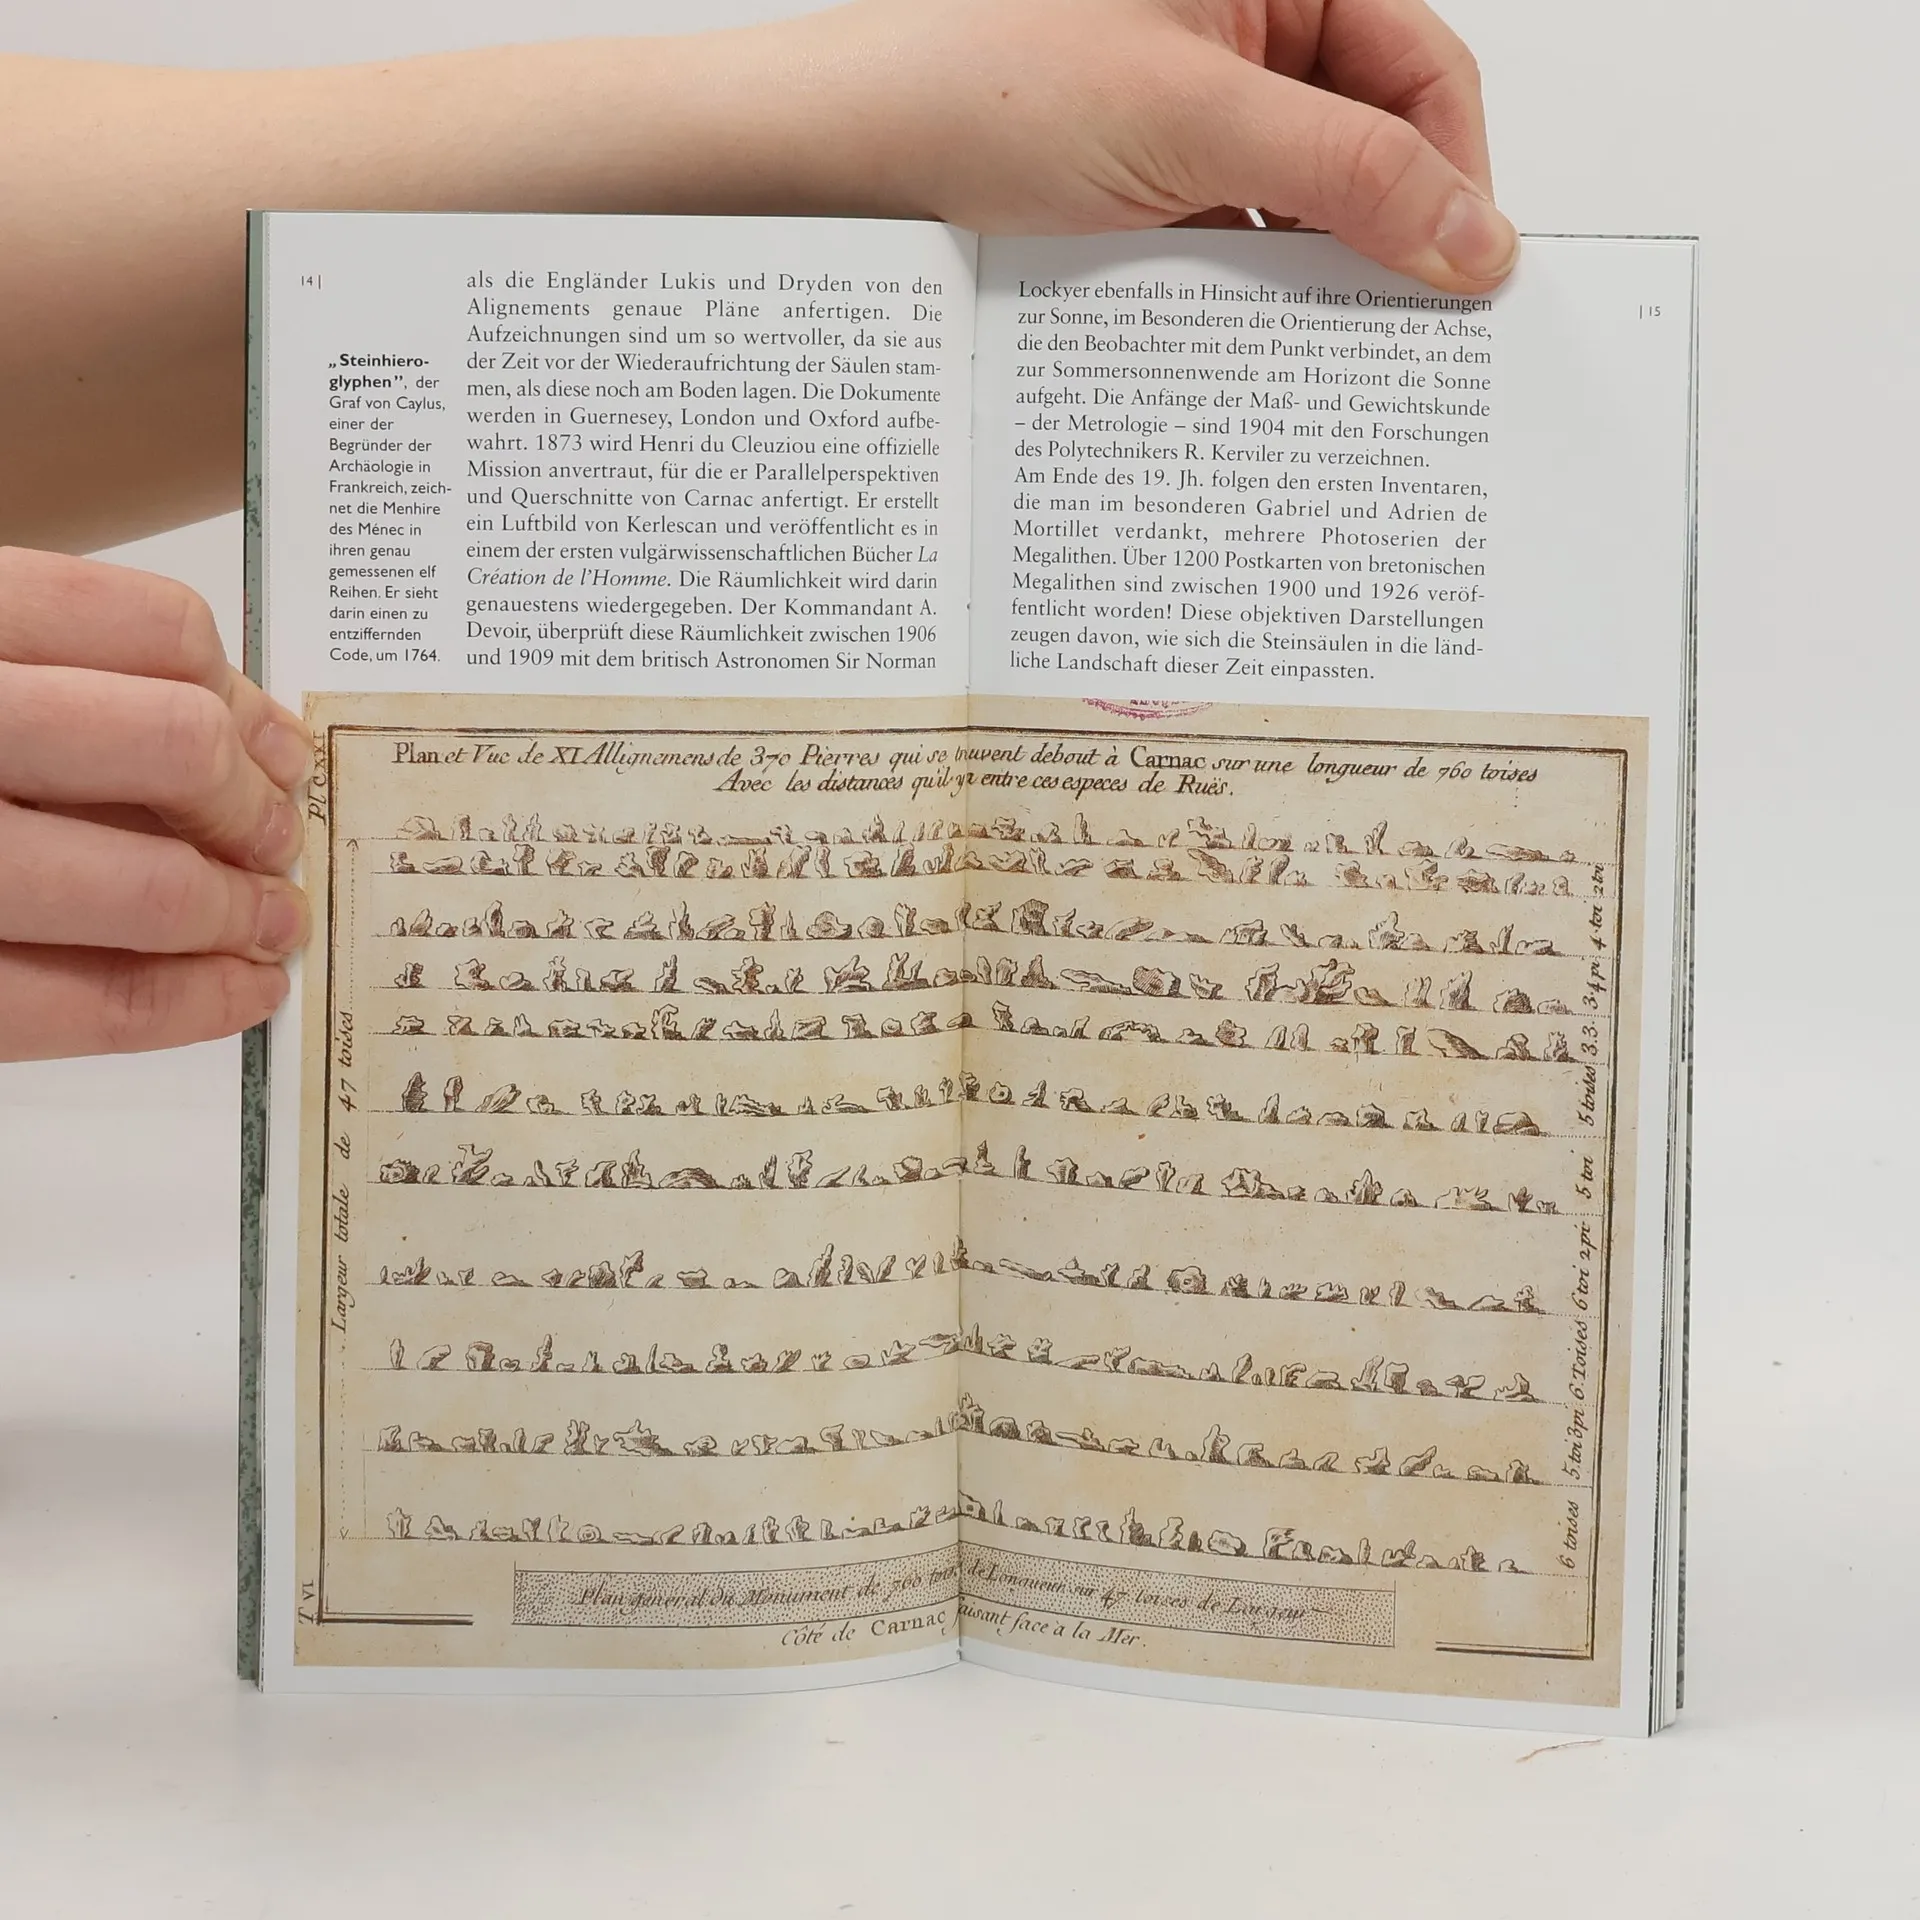 14 |
als die Engländer Lukis und Dryden von den
Alignements genaue Pläne anfertigen. Die
Aufzeichnungen sind um so wertvoller, da sie aus
der Zeit vor der Wiederaufrichtung der Säulen stam-
men, als diese noch am Boden lagen. Die Dokumente
werden in Guernesey, London und Oxford aufbe-
wahrt. 1873 wird Henri du Cleuziou eine offizielle
Mission anvertraut, für die er Parallelperspektiven
und Querschnitte von Carnac anfertigt. Er erstellt
ein Luftbild von Kerlescan und veröffentlicht es in
einem der ersten vulgärwissenschaftlichen Bücher La
Création de l'Homme. Die Räumlichkeit wird darin
genauestens wiedergegeben. Der Kommandant A.
Devoir, überprüft diese Räumlichkeit zwischen 1906
und 1909 mit dem britisch Astronomen Sir Norman
„Steinhiero-
glyphen”, der
Graf von Caylus,
einer der
Begründer der
Archäologie in
Frankreich, zeich-
net die Menhire
des Ménec in
ihren genau
gemessenen elf
Reihen. Er sieht
darin einen zu
entziffernden
Code, um 1764.
| 15
Lockyer ebenfalls in Hinsicht auf ihre Orientierungen
zur Sonne, im Besonderen die Orientierung der Achse,
die den Beobachter mit dem Punkt verbindet, an dem
zur Sommersonnenwende am Horizont die Sonne
aufgeht. Die Anfänge der Maß- und Gewichtskunde
– der Metrologie – sind 1904 mit den Forschungen
des Polytechnikers R. Kerviler zu verzeichnen.
Am Ende des 19. Jh. folgen den ersten Inventaren,
die man im besonderen Gabriel und Adrien de
Mortillet verdankt, mehrere Photoserien der
Megalithen. Über 1200 Postkarten von bretonischen
Megalithen sind zwischen 1900 und 1926 veröf-
fentlicht worden! Diese objektiven Darstellungen
zeugen davon, wie sich die Steinsäulen in die länd-
liche Landschaft dieser Zeit einpassten.
Pl CXXI
Plan et Vue de XI Allignemens de 370 Pierres qui se trouvent debout à Carnac sur une longueur de 760 toises
Avec les distances qu'il y a entre ces especes de Ruës.
Largeur totale de 47 toises
2 toi
4 toi
3 4 pi
3.3.
5 toises
5 toi
6 toi 2 pi
6 Toises
5 toi 3 pi
6 toises
T VI
Plan général du Monument de 760 toises de Longueur sur 47 toises de Largeur
Côté de Carnac faisant face à la Mer.